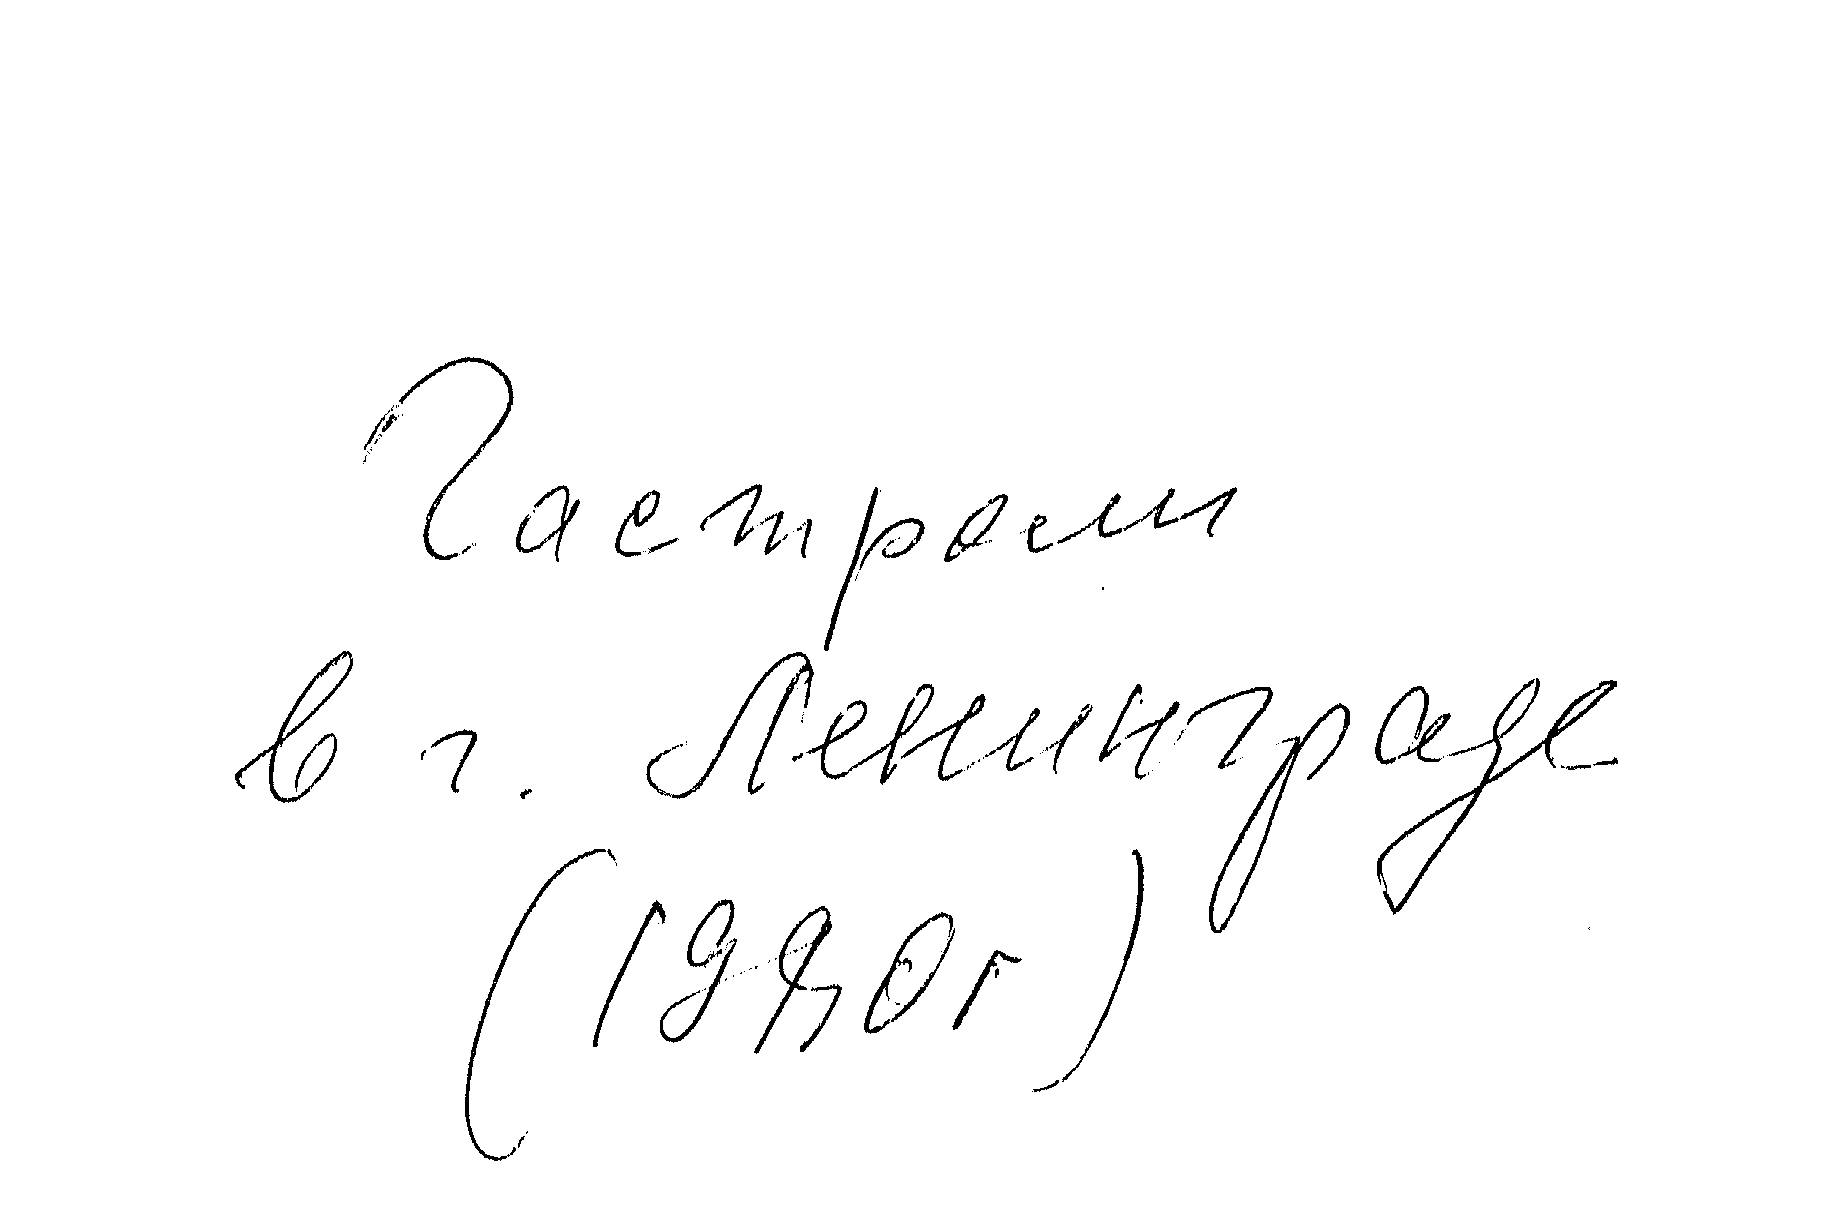 Гастроли
в г. Ленинграде